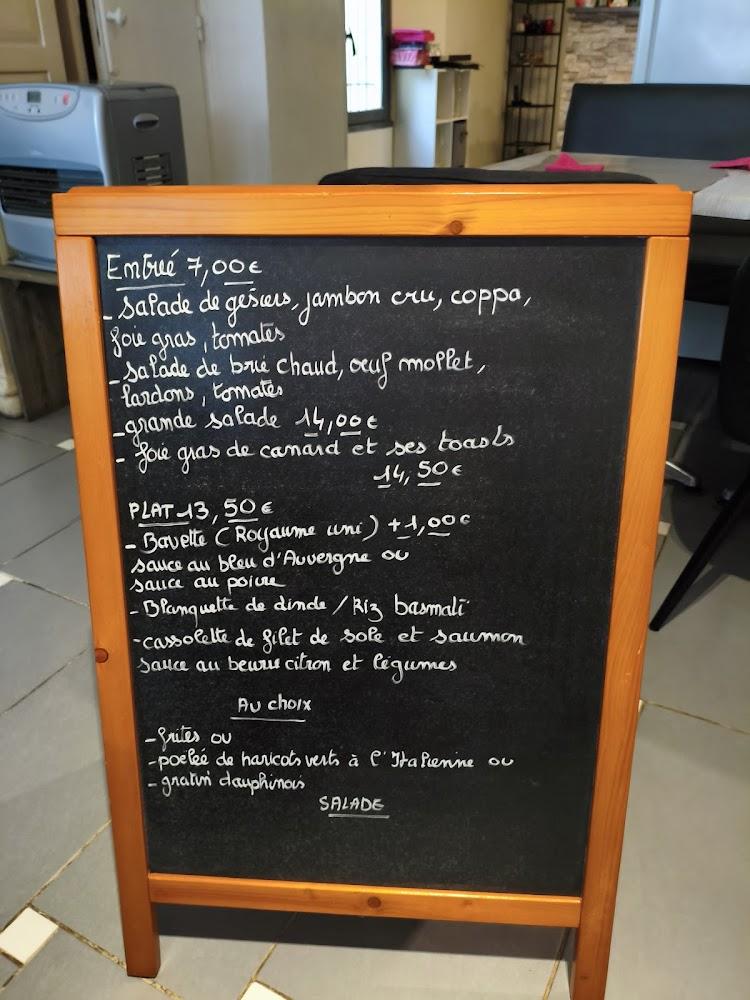 Entrée 7,00€
- salade de gésiers, jambon cru, coppa,
foie gras, tomates
- salade de brie chaud, œuf mollet,
lardons, tomates
- grande salade 14,00€
- foie gras de canard et ses toasts
14,50€
PLAT 13,50€
- Bavette (Royaume uni) +1,00€
sauce au bleu d'Auvergne ou
sauce au poivre
- Blanquette de dinde / Riz basmati
- cassolette de filet de sole et saumon
sauce au beurre citron et légumes
Au choix
- frites ou
- poêlée de haricots verts à l'Italienne ou
- gratin dauphinois
SALADE